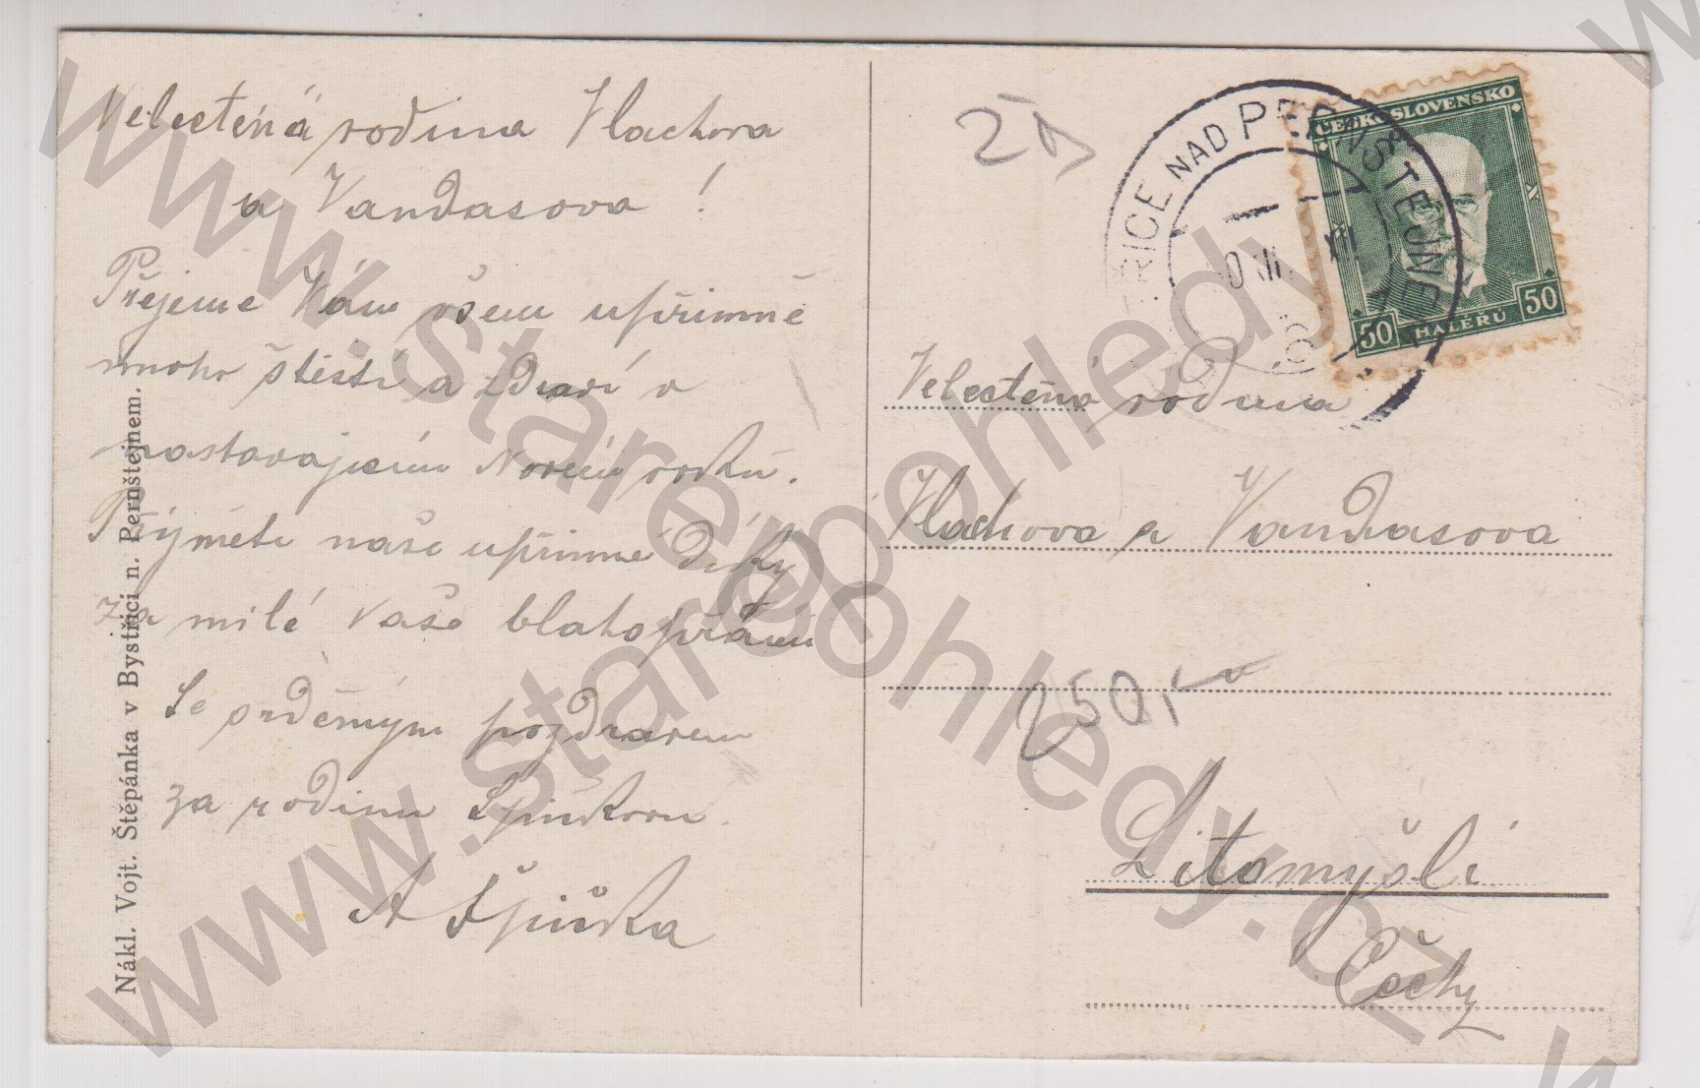 Velectěná rodina Vlachova
a Vandasova!
Přejeme Vám všem upřimně
mnoho štěstí a zdraví v
nastavajicím Novém roku.
Přijměte naše upřimné díky
za milé Vaše blahopřání
Se srděčným pozdravem
za rodinu Špinkovu.
A Špinka
Nákl. Vojt. Štěpánka v Bystřici n. Pernštejnem.
ŘICE NAD PERNŠTEJNEM
ČESKOSLOVENSKO
50 HALÉŘŮ 50
Velectěná rodina
Vlachova a Vandasova
250,-
Litomyšli
Čechy
www.starepohledy.cz
www.starepohledy.cz